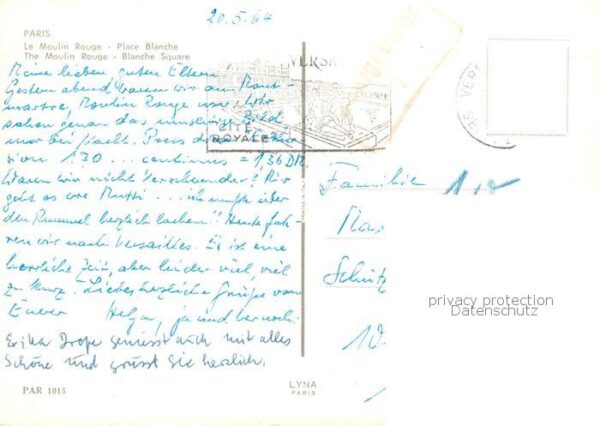 20.5.64
PARIS
Le Moulin Rouge - Place Blanche
The Moulin Rouge - Blanche Square
Meine lieben, guten Eltern!
Gestern abend waren wir am Mont-
martre, Moulin Rouge usw. Wir
sahen genau das umseitige Bild
nur bei Nacht. Preis der
sion 170 centimes = 1,36 DM.
Waren wir nicht Verschwender? Mir
geht es wie Mutti ... ich mußte über
den Rummel herzlich lachen! Heute fah-
ren wir nach Versailles. Es ist eine
herrliche Zeit, aber leider viel, viel
zu kurz. Liebe, herzliche Grüße von
Eurer Helga, ja und
Erika Drope geniesst auch mit alles
Schöne und grüsst Sie herzlich.
PAR 1015
LYNA
PARIS
CITÉ
ROYALE
VERSA
Familie
Schütz
10-
privacy protection
Datenschutz